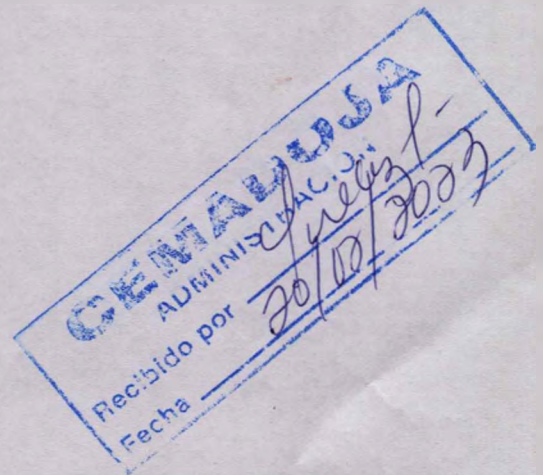 CEMADOJA
ADMINISTRACION
Recibido por
Fecha 20/02/2023